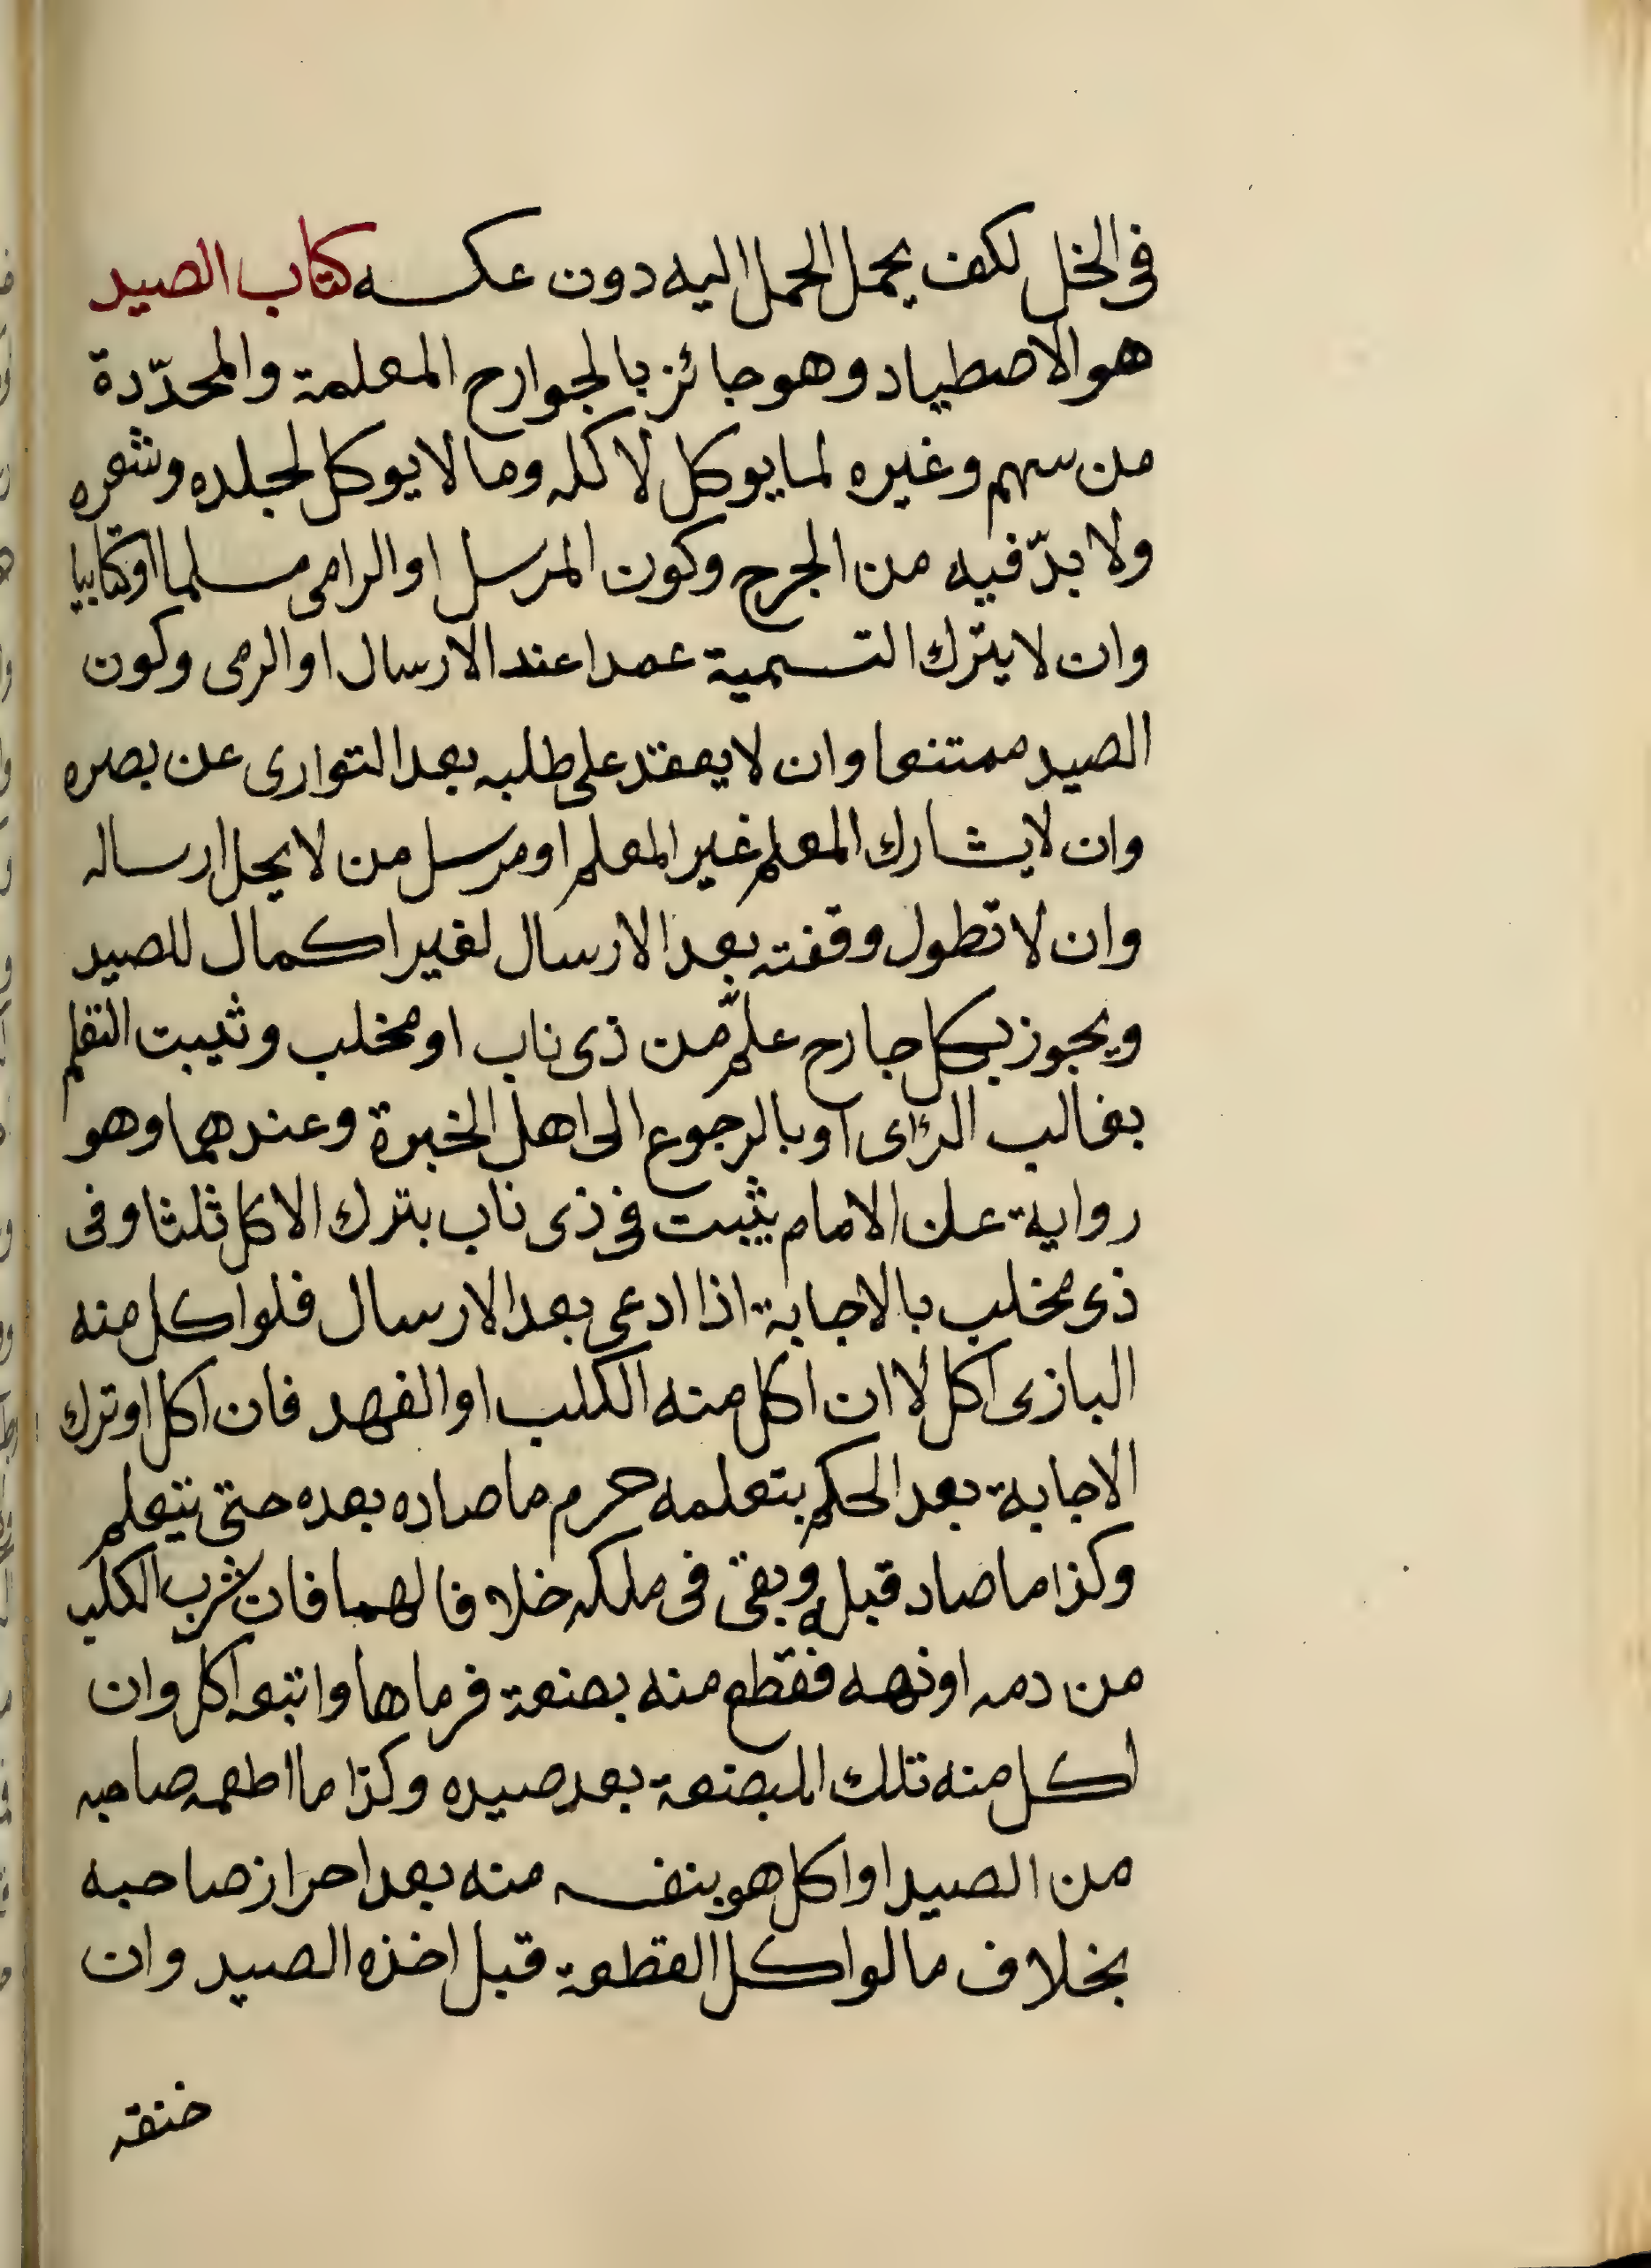 فى الخل لكن يحمل الحمل اليه دون عكسه كتاب الصيد
هو الاصطياد وهو جائز بالجوارح المعلمة والمحدّدة
من سهم وغيره لما يوكل لاكله وما لا يوكل لجلده وشعره
ولا بدّ فيه من الجرح وكون المرسل او الرامى مسلما او كتابيا
وان لا يترك التسمية عمدا عند الارسال او الرمى وكون
الصيد ممتنعا وان لا يعقد على طلبه بعد التوارى عن بصره
وان لا يشارك المعلم غير المعلم او مرسل من لا يحل ارساله
وان لا تطول وقفته بعد الارسال لغير اكمال للصيد
ويجوز بكل جارح علّم من ذى ناب او مخلب وثيبت التعلم
بغالب الرّاى او بالرجوع الى اهل الخبرة وعندهما وهو
رواية عن الامام يثبت فى ذى ناب بترك الاكل ثلثا وفى
ذى مخلب بالاجابة اذا ادعى بعد الارسال فلو اكل منه
البازى اكل لا ان اكل منه الكلب او الفهد فان اكل او ترك
الاجابة بعد الحكم بتعلمه حرم ما صاده بعده حتى يتعلم
وكذا ما صاد قبله وبقى فى ملكه خلافا لهما فان شرب الكلب
من دمه او نهسه فقطع منه بضعة فرماها واتبعه اكل وان
اكل منه تلك البضعة بعد صيده وكذا ما اطعمه صاحبه
من الصيد او اكل هو بنفسه منه بعد احراز صاحبه
بخلاف ما لو اكل القطعة قبل اخذه الصيد وان
خنقه